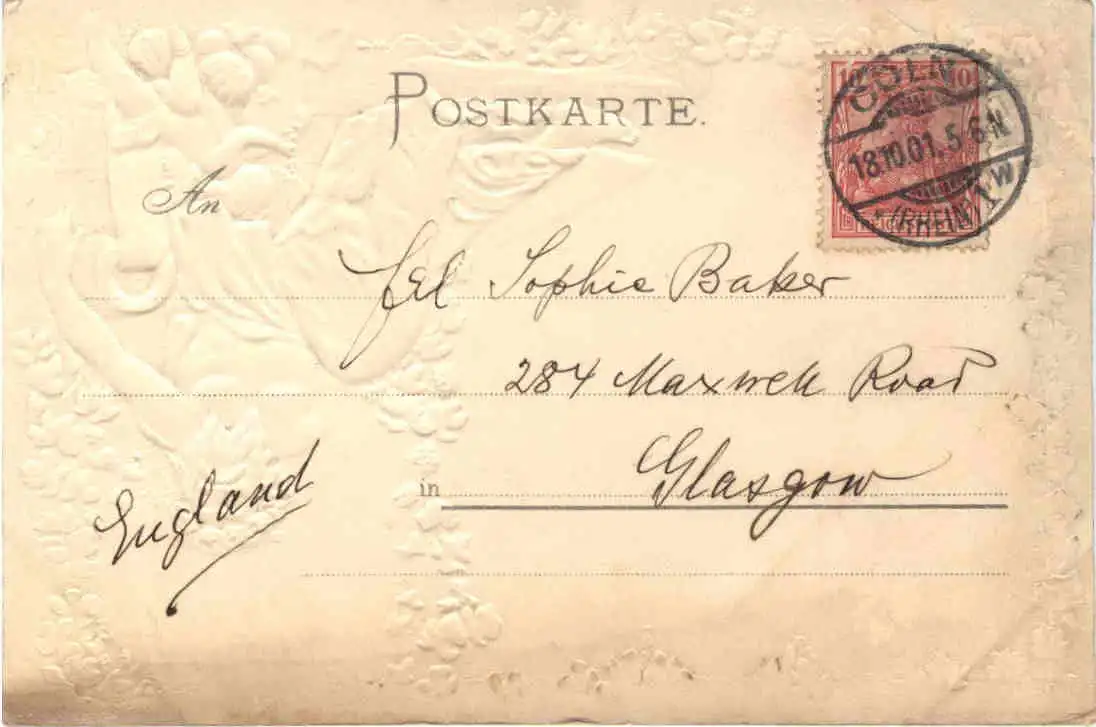 POSTKARTE.
10 10
CÖLN
18.10.01. 5-6N
* (RHEIN) 1 W
An
Frl Sophie Baker
284 Maxwell Road
in Glasgow
England